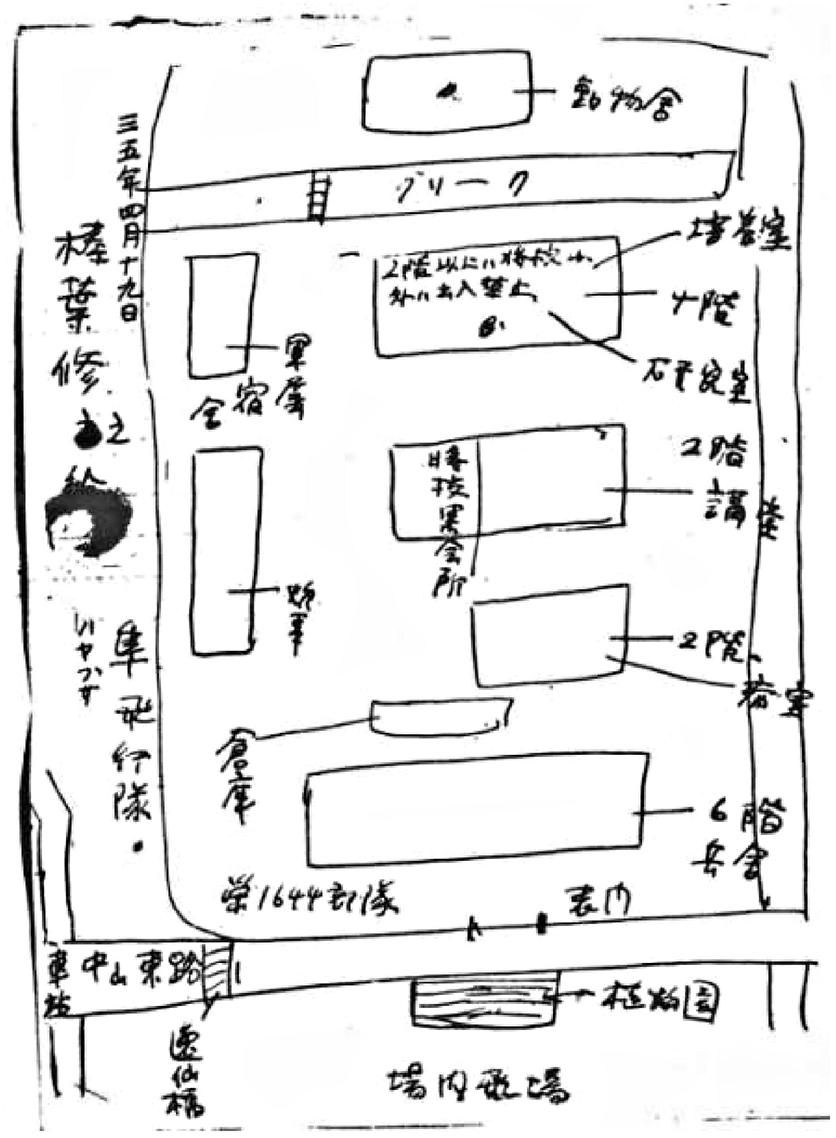 動物舎
クリーク
培養室
2階以上ハ将校以
外ハ出入禁止
4階
研究室
軍属
宿舎
2階
講堂
将校集会所
2階
倉庫
6階
兵舎
栄1644部隊
表門
中山東路
植物園
逸仙橋
場内飛場
三五年四月十九日
榛葉修
隼飛行隊
ハヤブサ